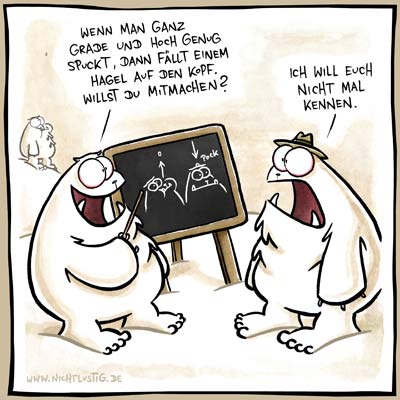 WENN MAN GANZ
GRADE UND HOCH GENUG
SPUCKT, DANN FÄLLT EINEM
HAGEL AUF DEN KOPF.
WILLST DU MITMACHEN?
ICH WILL EUCH
NICHT MAL
KENNEN.
Pock
WWW.NICHTLUSTIG.DE